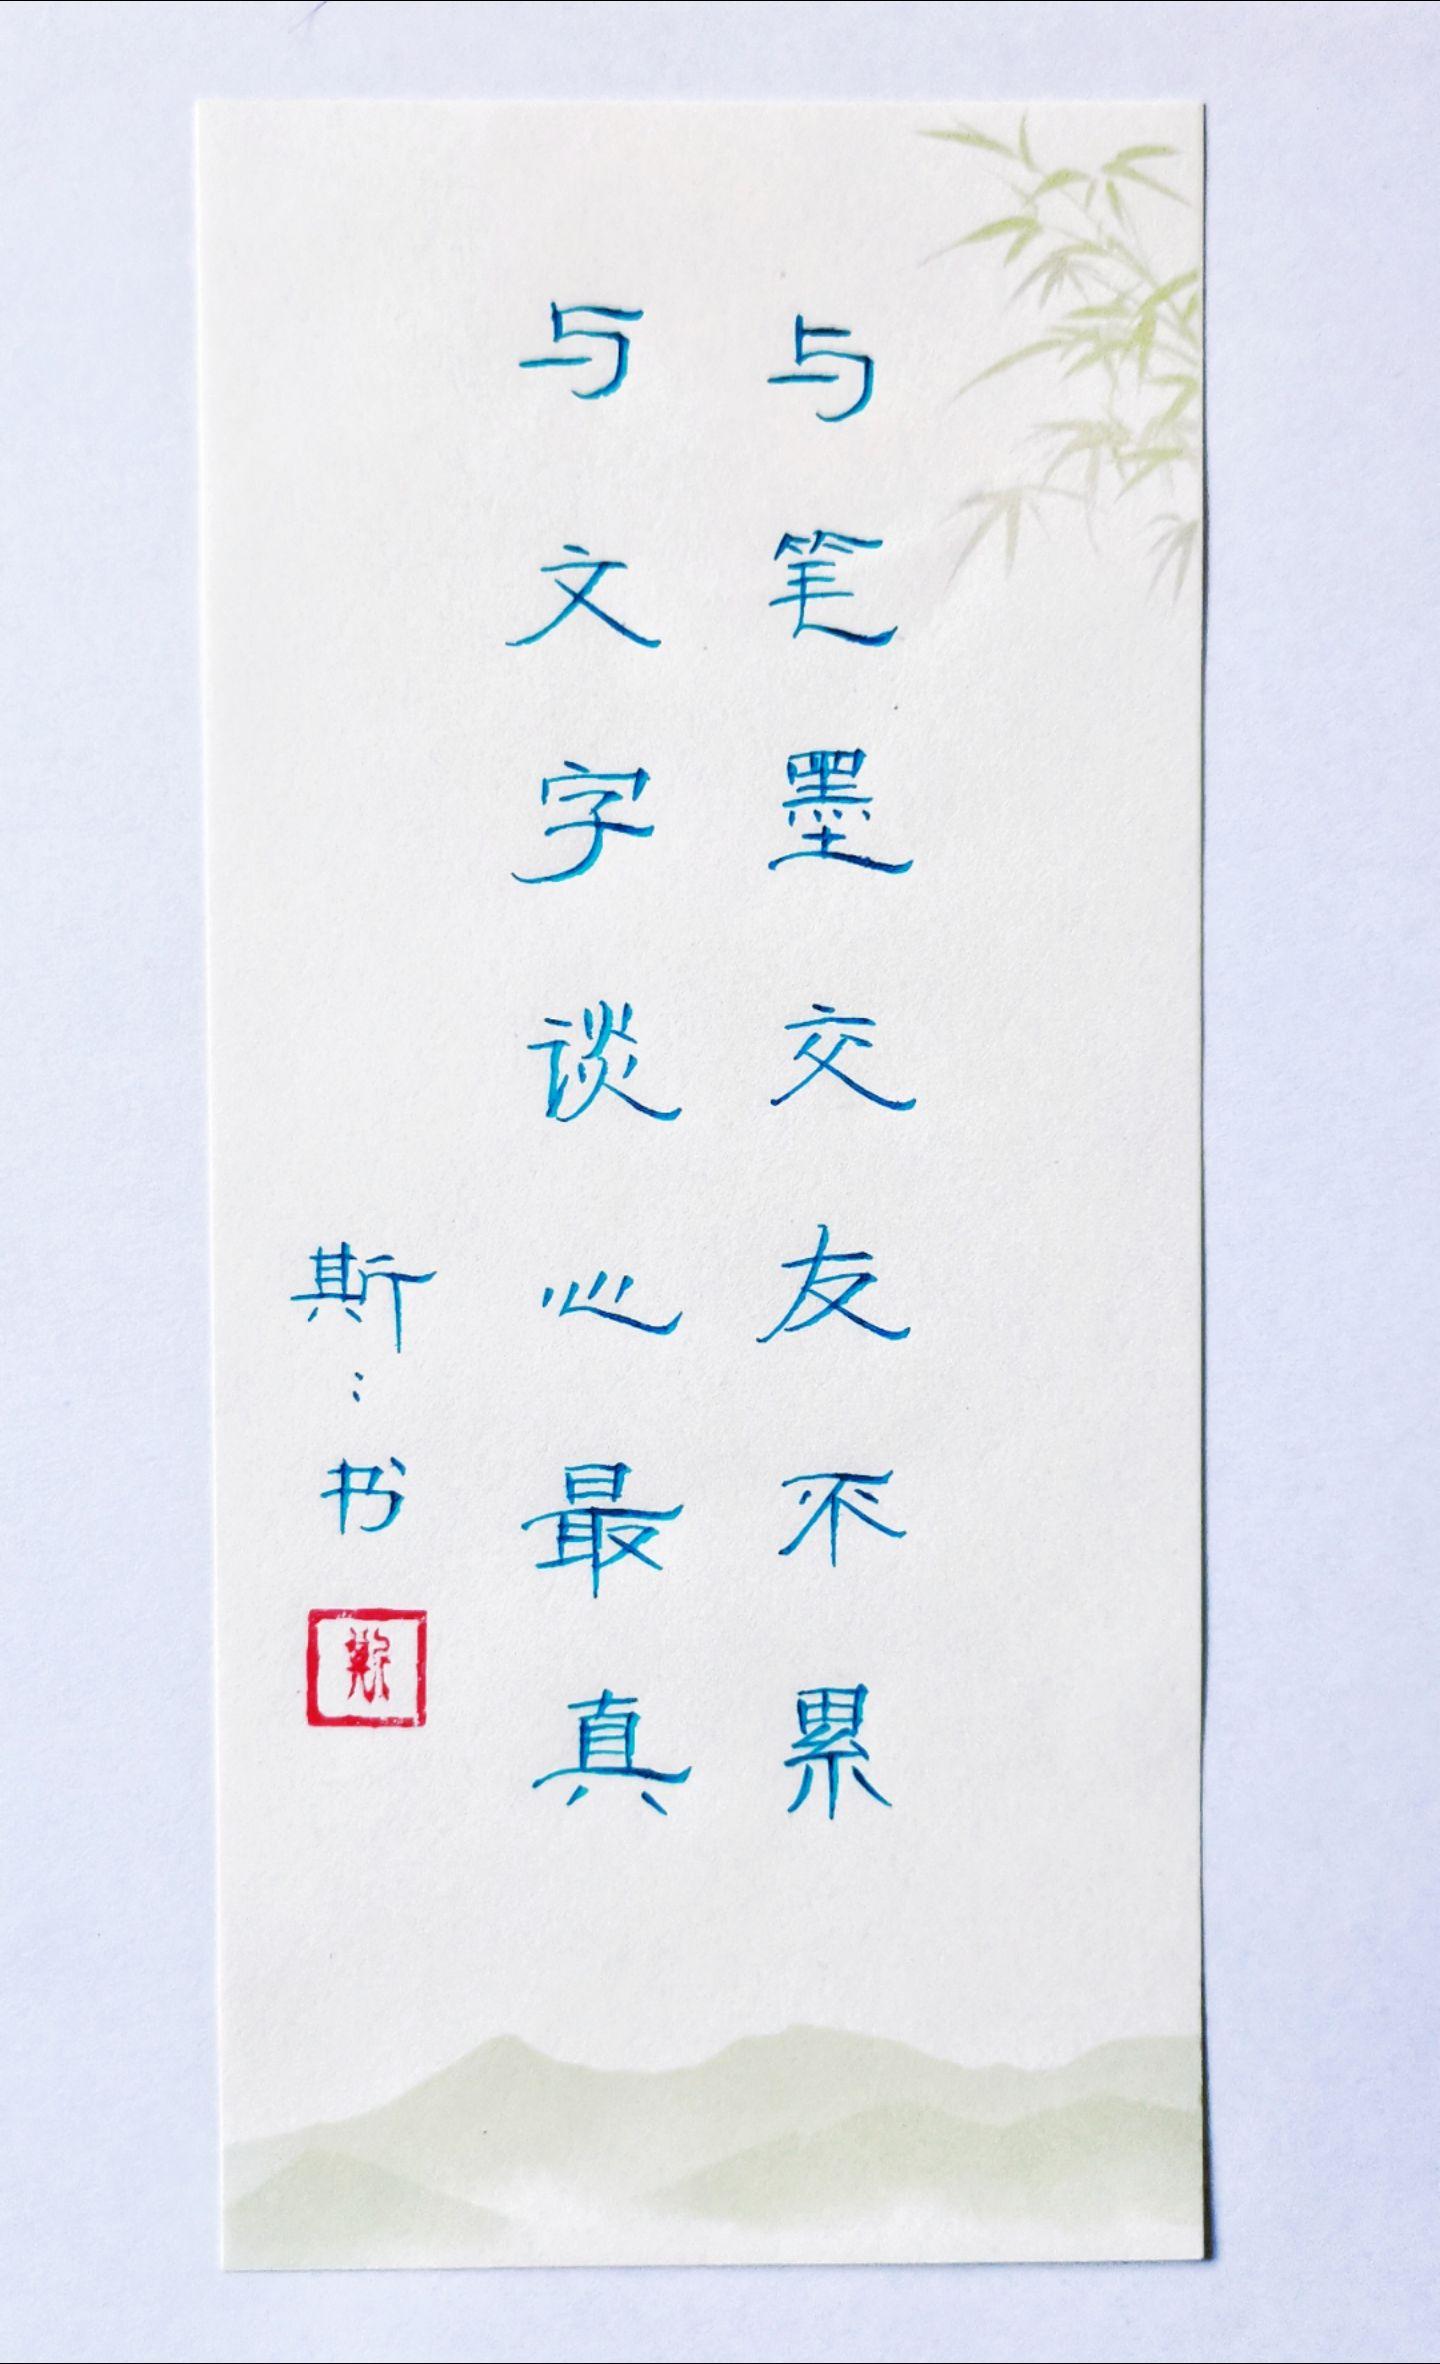 与笔墨交友不累
与文字谈心最真
斯：书
斯